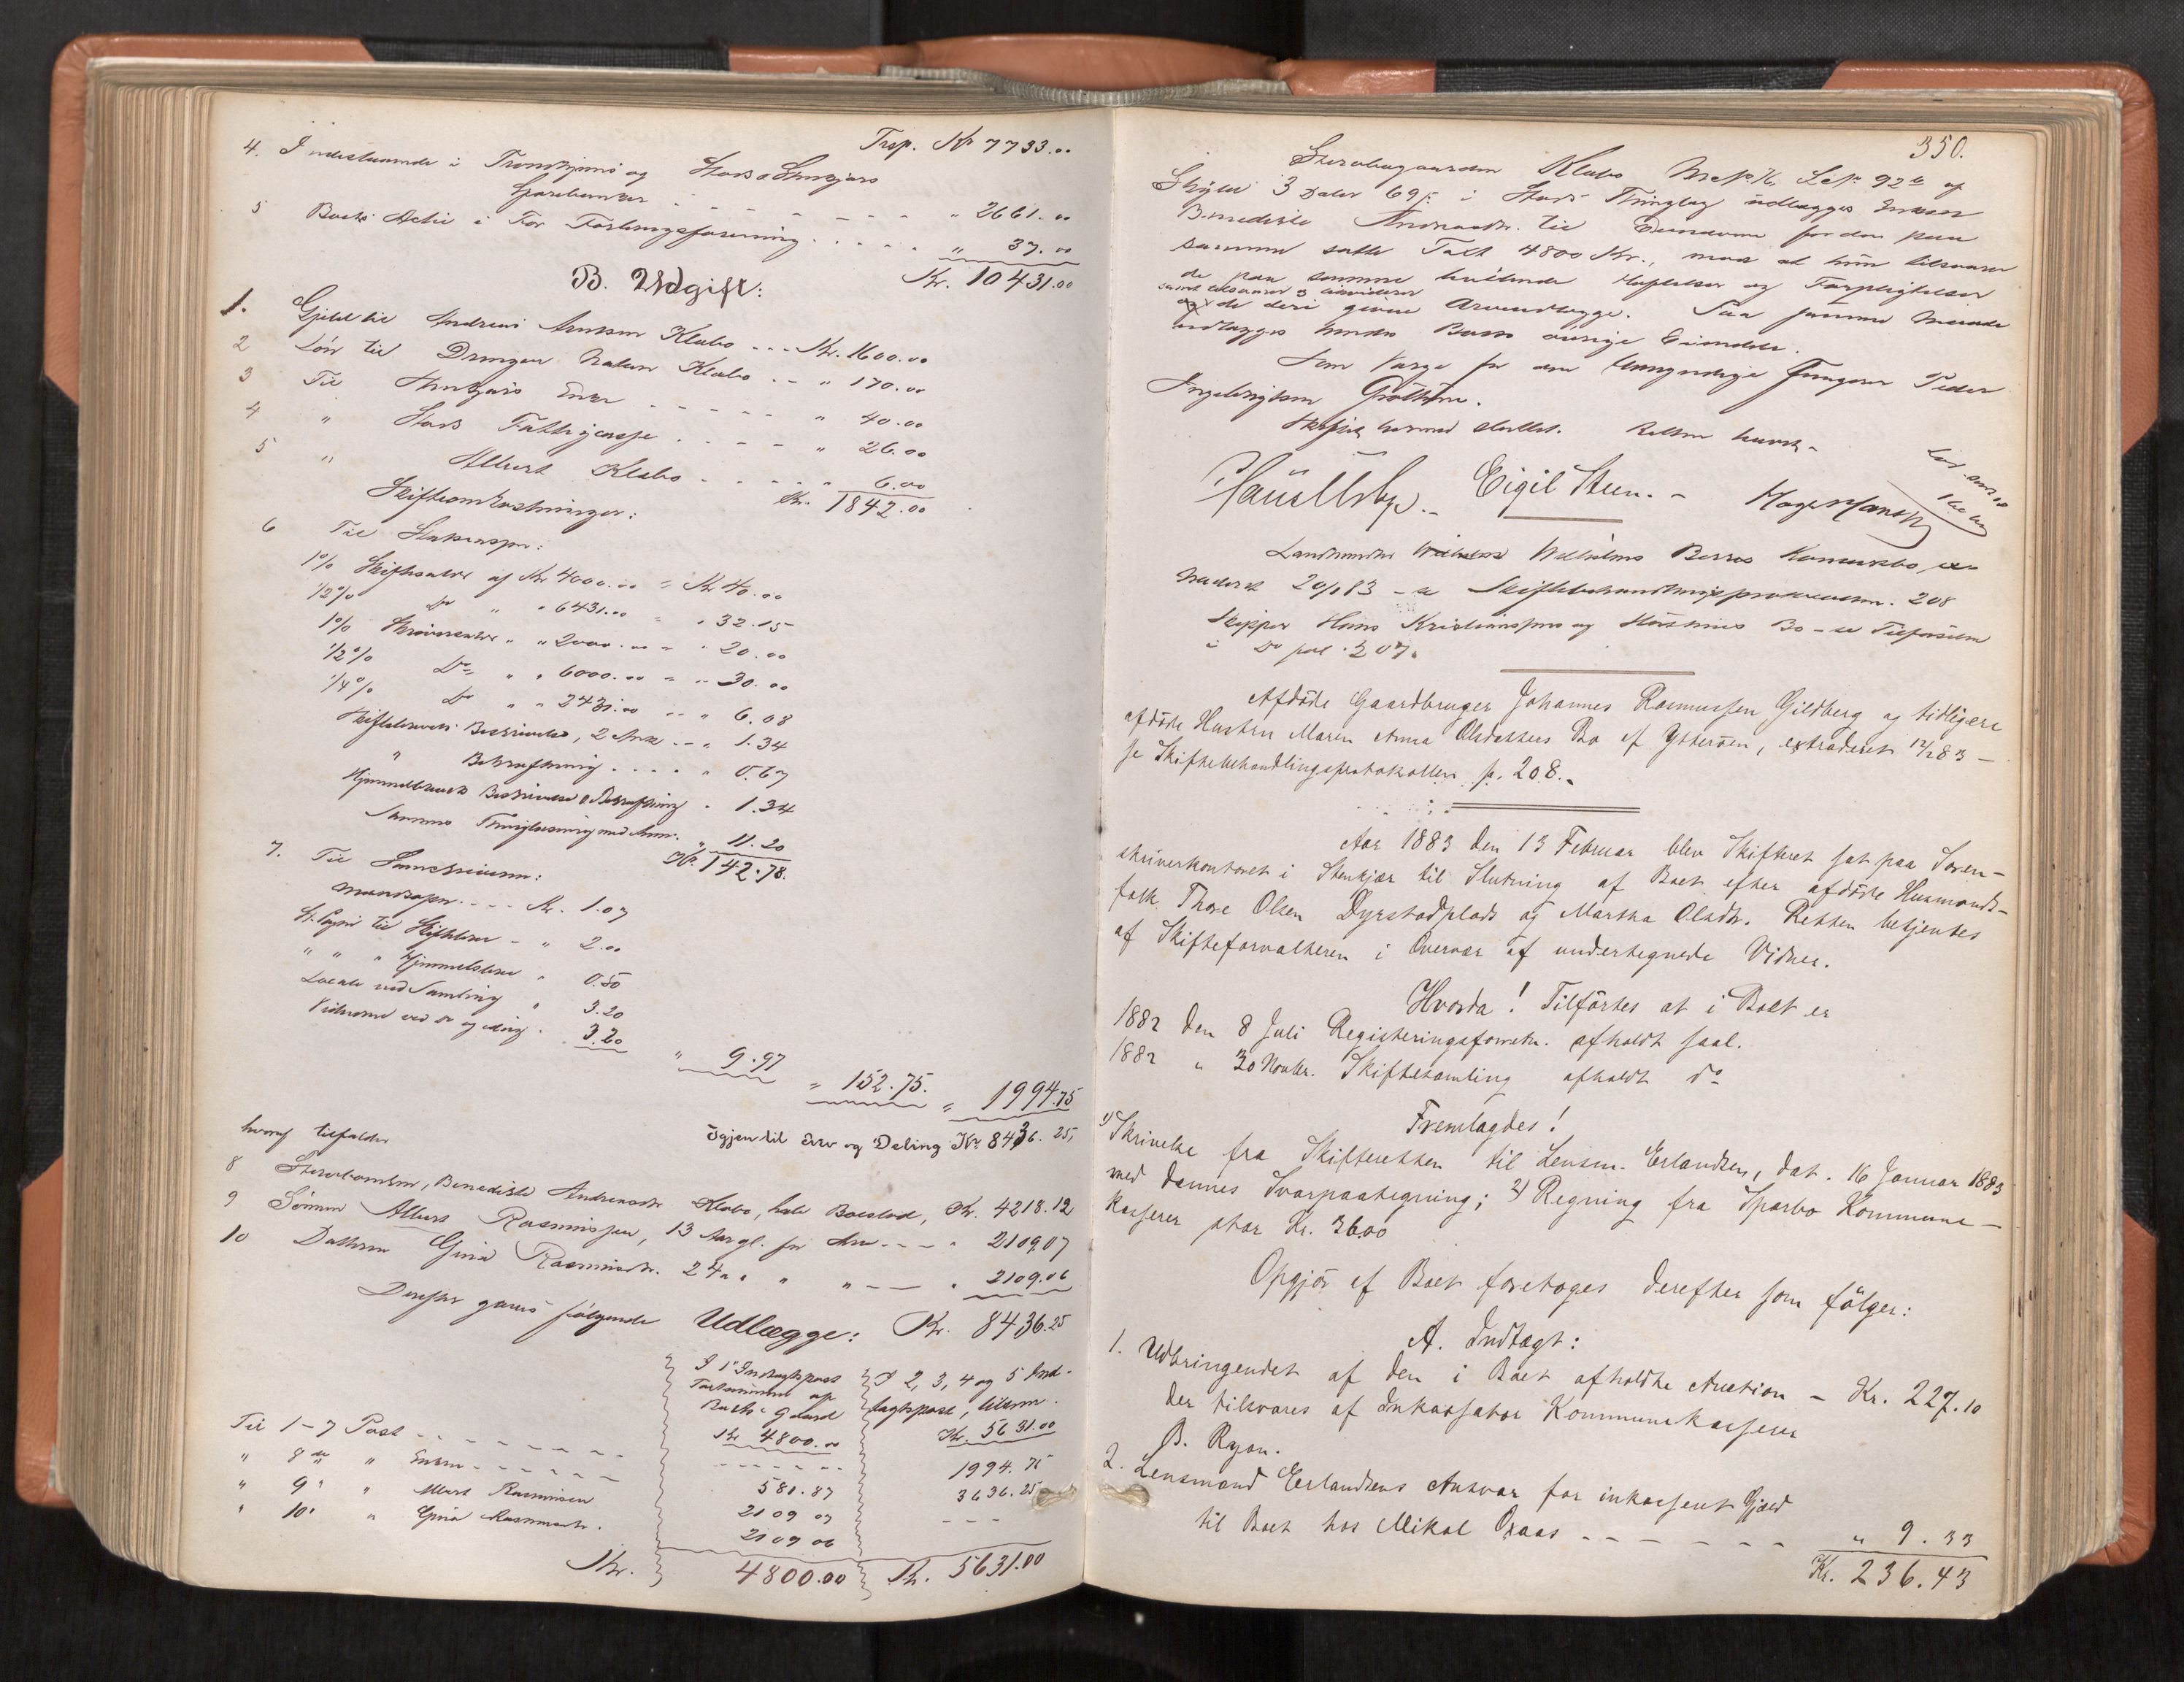 Trsp. Kr 7733.00
4. Indestaaende i Trondhjems og Stod & Stenkjærs
Sparebanker - - - - - - - " 2661.00
5 Boets Actie i For Forbrugsforening . . . . . " 37.00
Kr. 10431.00
B. Udgift:
1. Gjeld til Andreas Arntsen Klæbo - - - Kr. 1600.00
2 Løn til Drengen Klæbo - - " 170.00
3 Til Stenkjærs - - - - - " 40.00
4 " Stods Fattigcasse . - - - - " 26.00
5 " Albert Klæbo - - - - - " 6.00
Kr. 1842.00
Skifteomkostninger:
6 Til :
1% Skiftesalær af Kr 4000.00 = Kr 40.00
1/2% Do " " 6431.00 " " 32.15
1% Skriversalær " " 2000.00 = " 20.00
1/2% Do " " 6000.00 = " 30.00
1/4% Do " " 2431.00 " " 6.08
Skiftebrevets Beskrivelse, 2 Ark - - " 1.34
" Bekræftning . . . . " 0.67
Hjemmelbrevets Beskrivelse & Bekræftning " 1.34
Sammes Thinglæsning med Anm. " 11.20
Kr. 142.78.
7. Til :
- - - Kr. 1.07
St. Papir til Skiftebrev - " 2.00
" " " Hjemmelsbrev " 0.50
Locale ved Samling " 3.20
Vidnerne ved do og " 3.20
" 9.97
" 152.75. " 1994.75
Igjen til Arv og Deling Kr 8436.25,
hvoraf tilfalder
8 Benedikte Andreasdtr Klæbo, halv Boeslod, Kr. 4218.12
9 Sønnen Albert Rasmussen, 13 Aar gl. sin Arv - - - " 2109.07
10 Datteren Gina Rasmusdtr. 24 " " " " - - - " 2109.06
Kr. 8436.25
Derefter gjøres følgende Udlægge:
I 1ste Indtægtspost
Taxtsummen af
Boets Gaard
Kr 4800.00
I 2, 3, 4 og 5 Ind-
tægtspost, tilsm.
Kr. 5631.00
Til 1-7 Post - - - - - - - - - - - - - - 1994.75
" 8de " Enken - - - - - 581.87 3636.25
" 9 " " Albert Rasmussen 2109 07 - - -
" 10 " " Gina Rasmusdtr. 2109 06
Kr. 4800.00 Kr. 5631.00
350.
Stervbogaarden Klæbo Mt.No 16, L.No 92b af
Skyld 3 Daler 69 ß i Stods Thinglag udlægges Enken
Benedikte Andreasdtr. til Eiendom for den paa
samme satte Taxt 4800 Kr., mod at hun tilsvarer
de paa samme heftende Heftelser og Forpligtelser
samt tilsvarer &
de deri givne Arveudlægge. Paa samme Maade
udlægges hende Boets øvrige Eiendele.
Som Værge for den Umyndige fungerer Peder
Ingebrigtsen Grøttum.
Skiftet hermed sluttet. Retten hævet. -
Eigil Steen. -
Landhandler Wilhelms Berres Konkursbo, ex-
traderet 20/1 83 - se Skiftebehandlingsprotocollen 208
Skipper Hans Kristiansens og Hustrues Bo - se Tilførselen
i Do pol. 207.
Afdøde Gaardbruger Johannes Rasmussen Gildberg og tidligere
afdøde Hustru Maren Anna Olsdatters Bo af Ytterøen, extraderet 12/2 83 -
se Skiftebehandlingsprotokollen p. 208. -
Aar 1883 den 13 Februar blev Skifteret sat paa Soren-
skriverkontoret i Stenkjær til Slutning af Boet efter afdøde Husmands-
folk Thore Olsen Dyrstadplads og Martha Olsdtr. Retten betjentes
af Skifteforvalteren i Overvær af undertegnede Vidner.
Hvorda! Tilførtes at i Boet er
1882 den 8 Juli Registeringsforretn. afholdt saal.
1882 " 30 Novbr. Skiftesamling afholdt do
Fremlagdes!
1) Skrivelse fra Skifteretten til Lensm. Erlandsen, dat. 16 Januar 1883
med dennes Svarpaategning; 2) Regning fra Sparbo Kommune-
kasserer stor Kr. 36.00
Opgjør af Boet foretoges derefter som følger:
A. Indtægt:
1. Udbringendet af den i Boet afholdte Auction - Kr. 227.10
der tilsvares af Inkassator Kommunekasserer
B. Ryan.
2. Lensmand Erlandsens Ansvar for inkasseret Gjæld
til Boet hos Mikal Oxaas - - - - - - " 9.33
Kr. 236.43